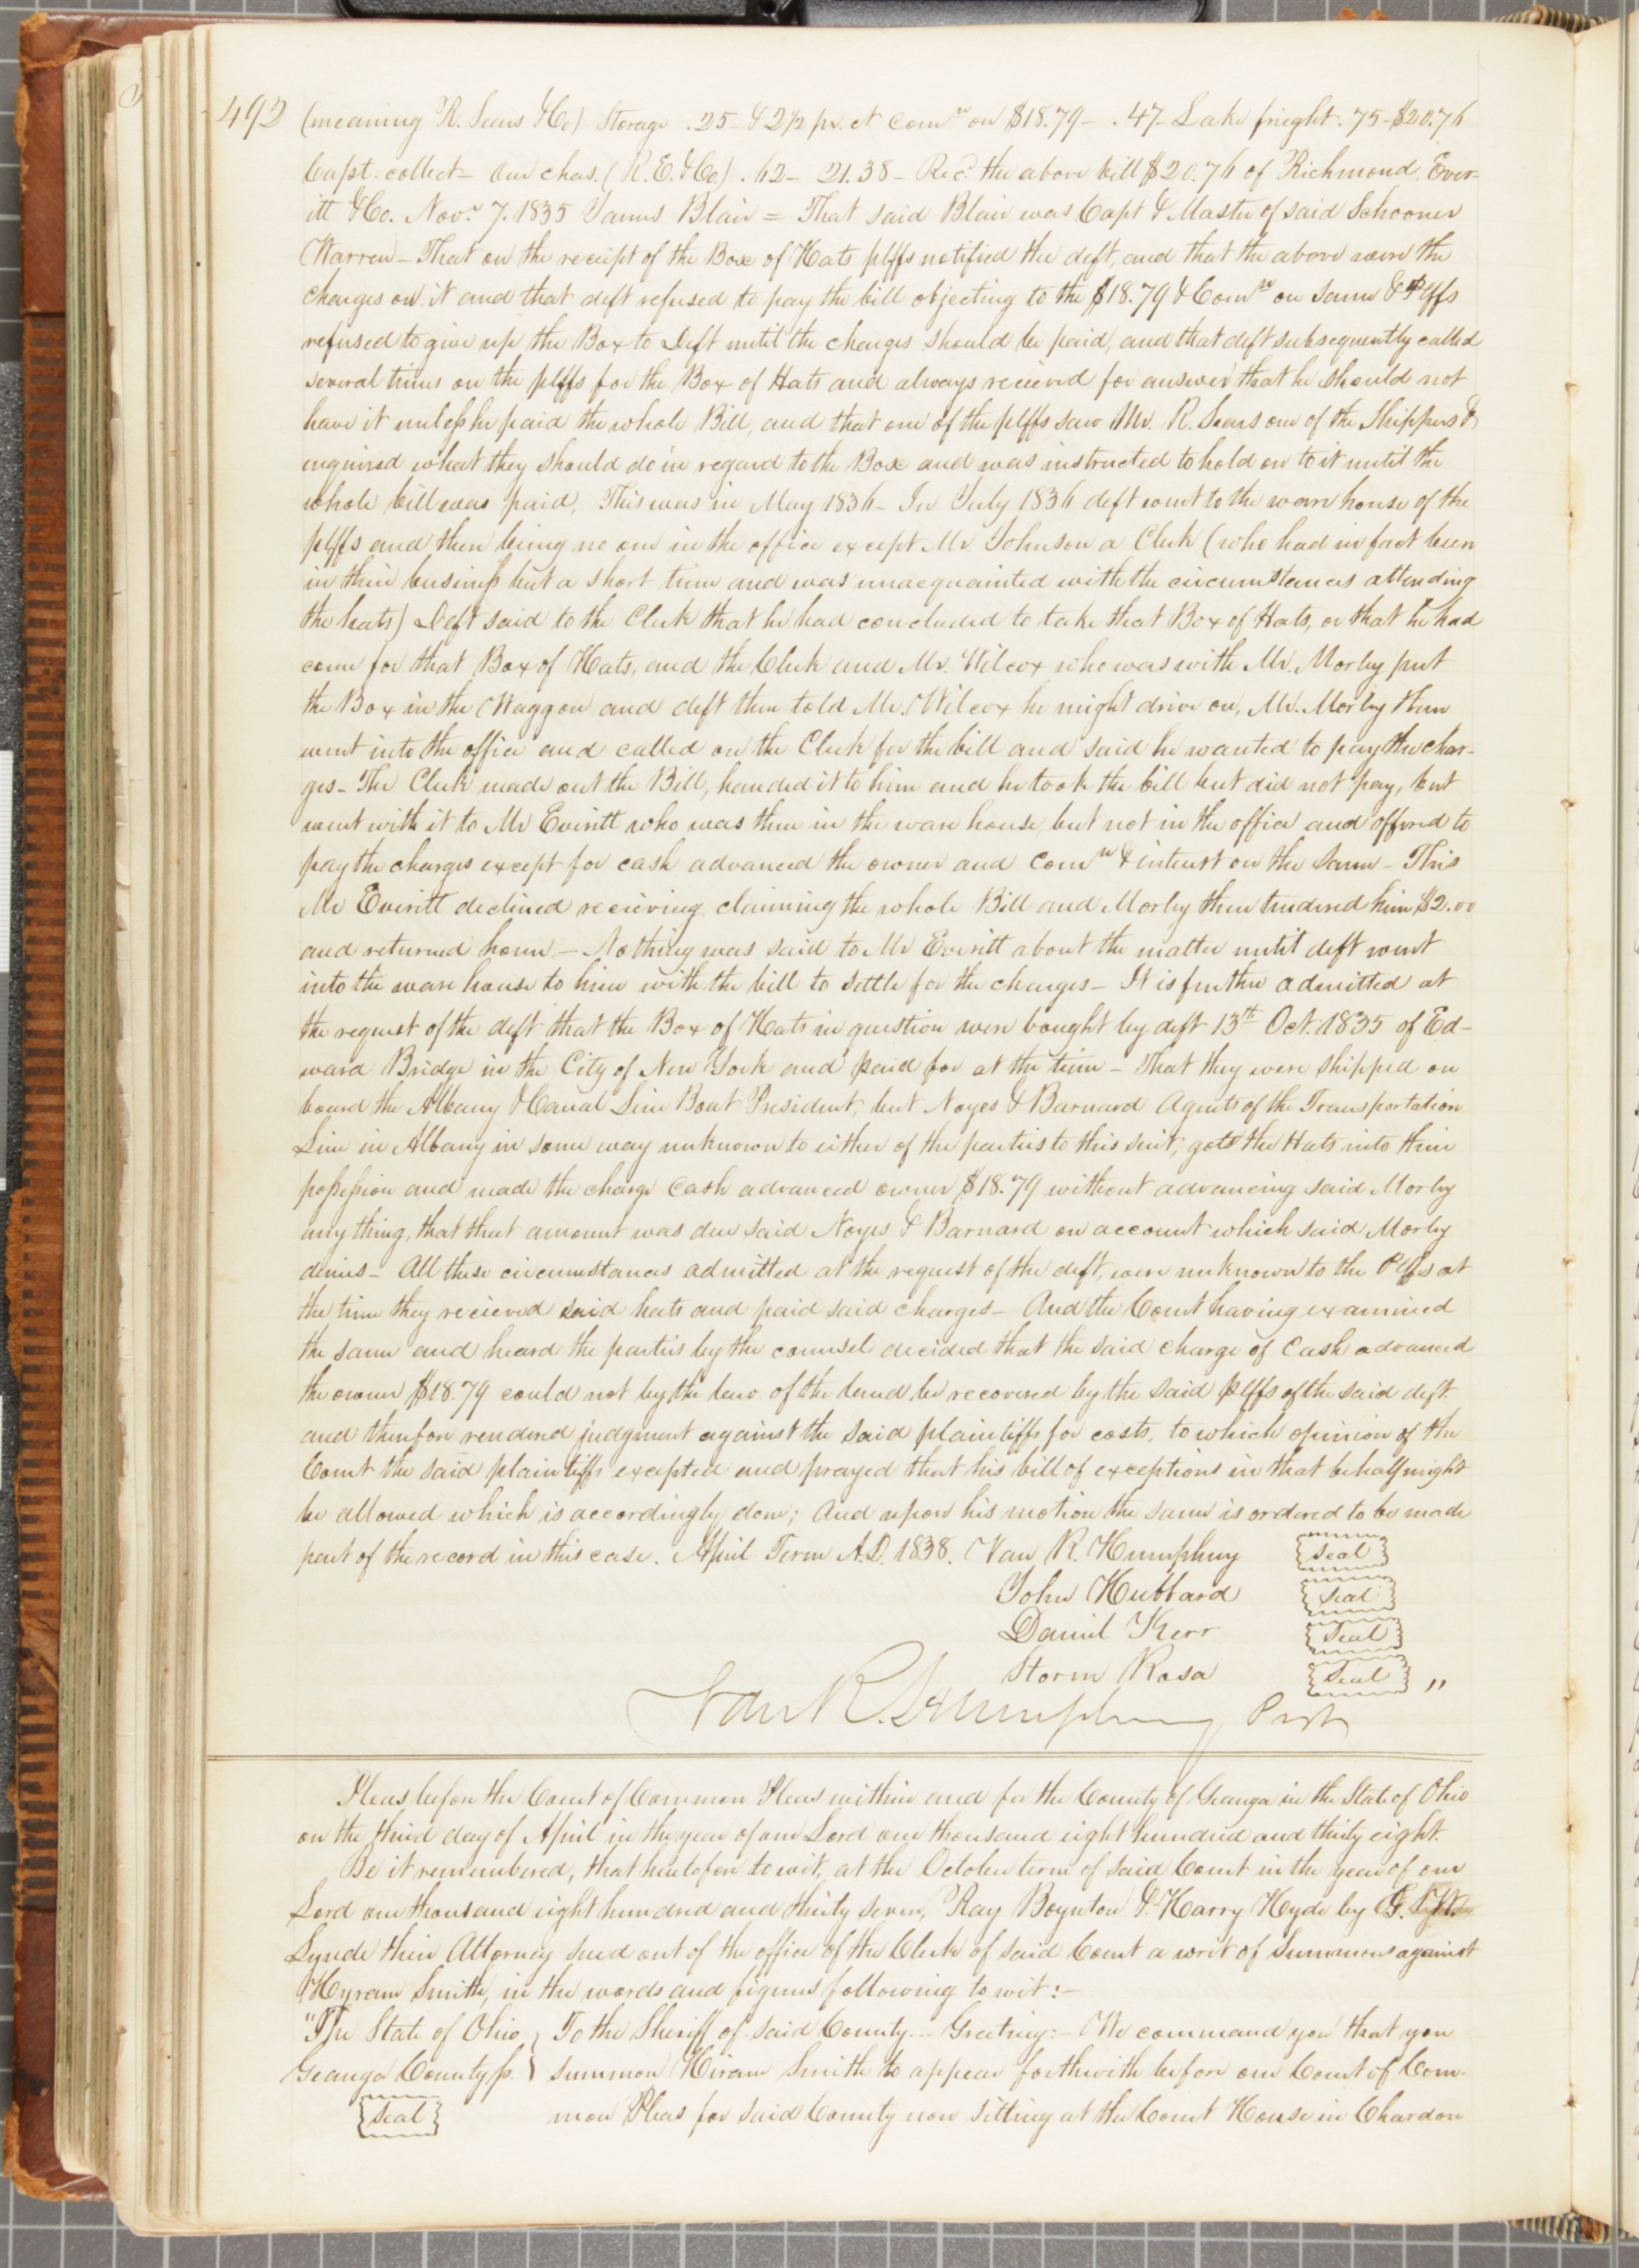 492 (meaning R. Sears & Co) Storage .25 - & 2 1/2 pr. ct Com.n on $18.79 - .47 - Lake frieght .75 - $20.76
Capt. collect - Our chas. (R. E. & Co.) .62 - 21.38 - Rec.d the above bill $20.76 of Richmond Ever-
itt & Co. Nov.r 7. 1835 James Blair = That said Blair was Capt & Master of said Schooner
Warren - That on the receipt of the Box of Hats plffs notified the deft, and that the above were the
charges on it and that deft refused to pay the bill objecting to the $18.79 & Com.n on same & Plffs
refused to give up the Box to Deft until the charges should be paid, and that deft subsequently called
several times on the plffs for the Box of Hats and always recieved for answer that he should not
have it unless he paid the whole Bill, and that one of the plffs saw Mr. R. Sears one of the Shippers &
enquired what they should do in regard to the Box and was instructed to hold on to it until the
whole bill was paid, This was in May 1836 - In July 1836 deft went to the ware house of the
plffs and there being no one in the office except Mr Johnson a Clerk (who had in fact been
in their business but a short time and was unacquainted with the circumstances attending
the hats) Deft said to the Clerk that he had concluded to take that Box of Hats, or that he had
come for that Box of Hats, and the Clerk and Mr. Wilcox who was with Mr. Morley put
the Box in the Waggon and deft then told Mr. Wilcox he might drive on, Mr. Morley then
went into the office and called on the Clerk for the bill and said he wanted to pay the char-
ges - The Clerk made out the Bill, handed it to him and he took the bill but did not pay, but
went with it to Mr Everitt who was then in the ware house, but not in the office and offered to
pay the charges except for cash advanced the owner and Com.n & interest on the same - This
Mr Everitt declined recieving claiming the whole Bill and Morley then tendered him $2.00
and returned home - Nothing was said to Mr Everitt about the matter until deft went
into the ware house to him with the bill to settle for the charges - It is further admitted at
the request of the deft that the Box of Hats in question were bought by deft 13th Oct. 1835 of Ed-
ward Bridge in the City of New York and paid for at the time - That they were shipped on
board the Albany & Canal Line Boat President, but Noyes & Barnard Agents of the Transportation
Line in Albany in some way unknown to either of the parties to this suit, got the Hats into their
possession and made the charge Cash advanced owner $18.79 without advancing said Morley
any thing, that that amount was due said Noyes & Barnard on account which said Morley
denies - All these circumstances admitted at the request of the deft, were unknown to the Plffs at
the time they recieved said hats and paid said charges - And the Court having examined
the same and heard the parties by the counsel decided that the said charge of Cash advanced
the owner $18.79 could not by the law of the land be recovered by the said plffs of the said deft.
and therefore rendered judgment against the said plaintiffs for costs, to which opinion of the
Court the said plaintiffs excepted and prayed that his bill of exceptions in that behalf might
be allowed which is accordingly done; And upon his motion the same is ordered to be made
part of the record in this case. April Term A.D. 1838. Van R. Humphrey Seal
John Hubbard Seal
Daniel Kerr Seal
Storm Rosa Seal "
Van R. Humphrey Prest
Pleas before the Court of Common Pleas within and for the County of Geauga in the State of Ohio
on the third day of April in the year of our Lord one thousand eight hundred and thirty eight.
Be it remembered, that heretofore to wit, at the October term of said Court in the year of our
Lord one thousand eight hundred and thirty seven, Ray Boynton & Harry Hyde by
Lynde their Attorney sued out of the office of the Clerk of said Court a writ of Summons against
Hyram Smith, in the words and figures following to wit: -
"The State of Ohio } To the Sheriff of said County - Greeting: - We command you that you
Geauga County ss. } summon Hiram Smith to appear forthwith before our Court of Com-
Seal mon Pleas for said County now sitting at the Court House in Chardon